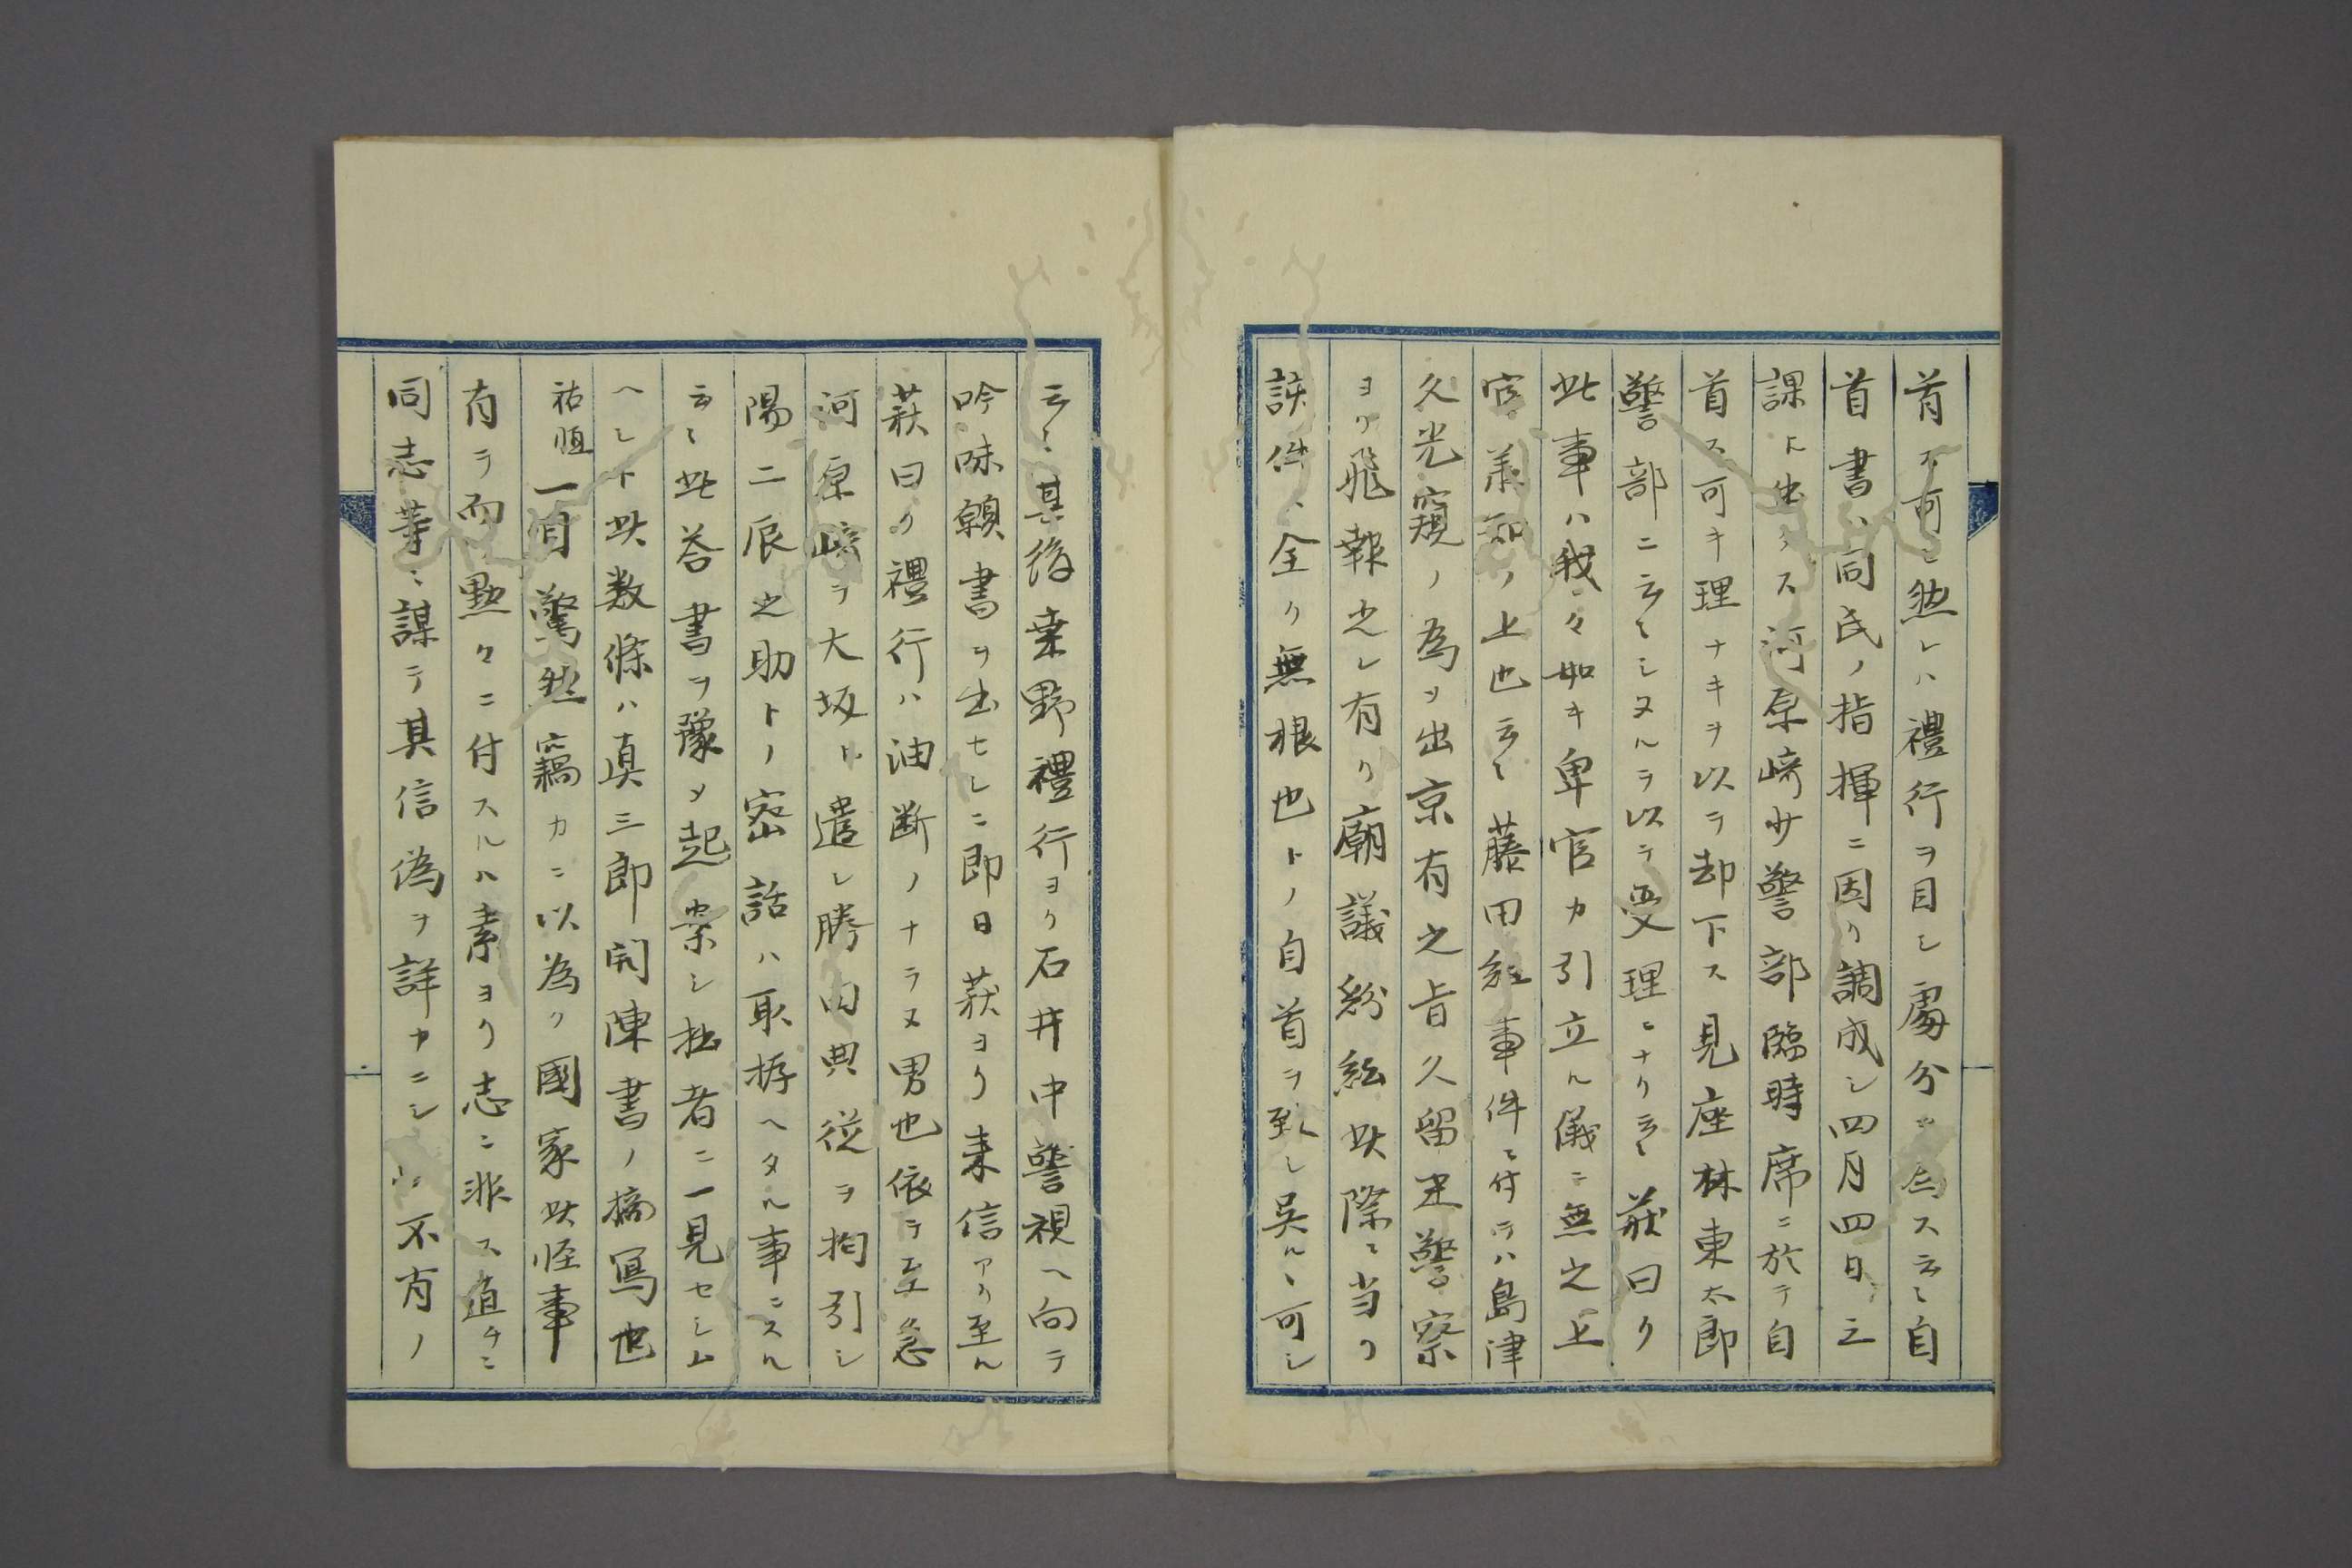 首ス可シ然レハ禮行ヲ目シ處分ニ及ス云々自
首書ハ同氏ノ指揮ニ因リ調成シ四月四日三
課ヘ出タス河原崎少警部臨時席ニ於テ自
首ス可キ理ナキヲ以テ却下ス見座林東太郎
警部ニ云々シヌルヲ以テ受理ニナリ云々萩曰ク
此事ハ我々如キ卑官カ引立ル儀ニ無之上
官兼知ノ上也云々藤田組事件ニ付テハ島津
久光窺ノ為ヲ出京有之旨久留米警察
ヨリ飛報之レ有リ廟議紛紜此際ニ当リ
該件ハ全ク無根也トノ自首ヲ致シ呉ルヽ可シ
云々其後桒野禮行ヨリ石井中警視ヘ向テ
吟味願書ヲ出セシニ即日萩ヨリ来信アリ至ル
萩曰ク禮行ハ油断ノナラヌ男也依テ至急
河原崎ヲ大坂ヘ遣シ勝内典從ヲ拘引シ
陽二辰之助トノ密話ハ取拵ヘタル事ニスル
云々此答書ヲ豫メ起案シ拙者ニ一見セシム
ヘシト此数條ハ真三郎開陳書ノ摘冩也
祐恒一目驚然竊カニ以為ク國家此怪事
有テ而黙々ニ付スルハ素ヨリ志ニ非ス直チニ
同志等ニ謀テ其信偽ヲ詳カニシ不有ノ